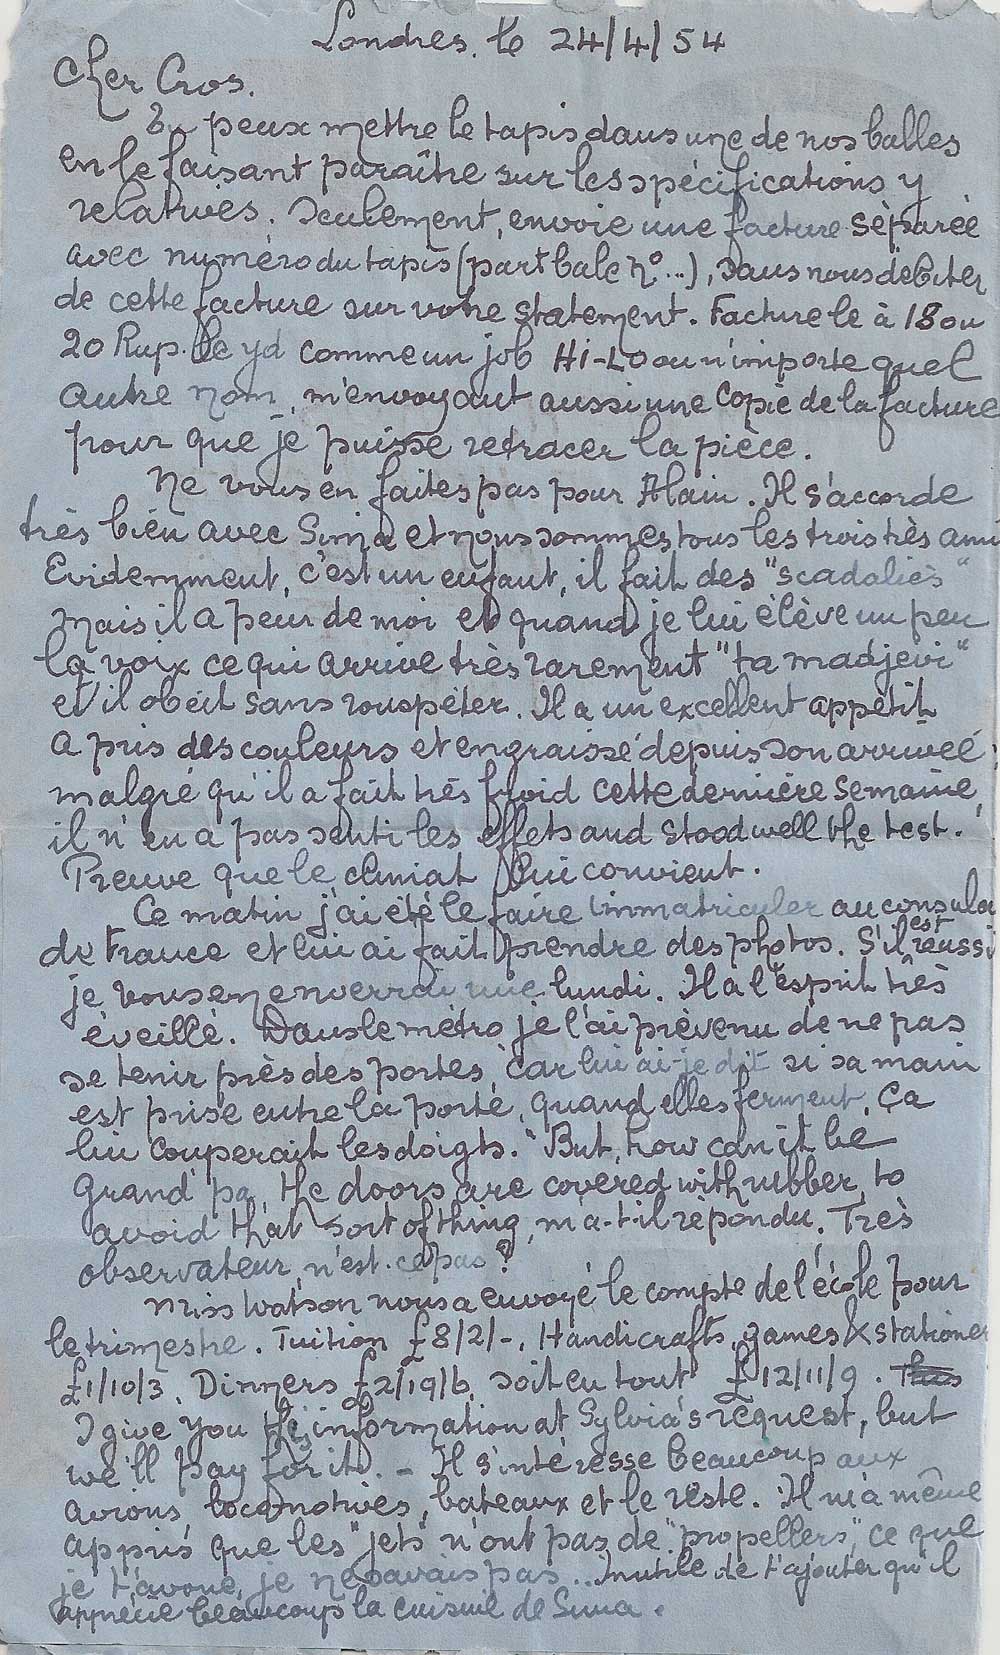 Londres, le 24/4/54
Cher Cros.
Tu peux mettre le tapis dans une de nos balles
en le faisant paraître sur les spécifications y
relatives. Seulement, envoie une facture séparée
avec numéro du tapis (part bale No...), sans nous débiter
de cette facture sur votre statement. Facture le à 18 ou
20 Rup. le yd comme un job Hi-Lo ou n'importe quel
autre nom, m'envoyant aussi une copie de la facture
pour que je puisse retracer la pièce.
Ne vous en faites pas pour Alain. Il s'accorde
très bien avec Sima et nous sommes tous les trois très ami
Evidemment, c'est un enfant, il fait des "scadaliès"
mais il a peur de moi et quand je lui élève un peu
la voix ce qui arrive très rarement "ta madjevi"
et il obéit sans rouspéter. Il a un excellent appétit
a pris des couleurs et engraissé depuis son arrivée;
malgré qu'il a fait très froid cette dernière semaine,
il n'en a pas senti les effets and stood well the test.
Preuve que le climat lui convient.
Ce matin j'ai été le faire immatriculer au consula
de France et lui ai fait prendre des photos. S'il est réussi
je vous en enverrai une lundi. Il a l'esprit très
éveillé. Dans le métro je l'ai prévenu de ne pas
se tenir près des portes, car lui ai-je dit si sa main
est prise entre la porte, quand elles ferment, ça
lui couperait les doigts. "But, how can it be
Grand'pa, the doors are covered with rubber, to
avoid that sort of thing, m'a-t-il répondu. Très
observateur, n'est-ce pas?
Miss Watson nous a envoyé le compte de l'école pour
le trimestre. Tuition £8/2/-, Handicrafts, games & statione
£1/10/3, Dinners £2/19/6, soit en tout £12/11/9.
I give you the information at Sylvia's request, but
we'll pay for it. - Il s'intéresse beaucoup aux
avions, locomotives, bateaux et le reste. Il m'a même
appris que les "jets" n'ont pas de "propellers", ce que
je t'avoue, je ne savais pas... Inutile de t'ajouter qu'il
apprécie beaucoup la cuisine de Sima.